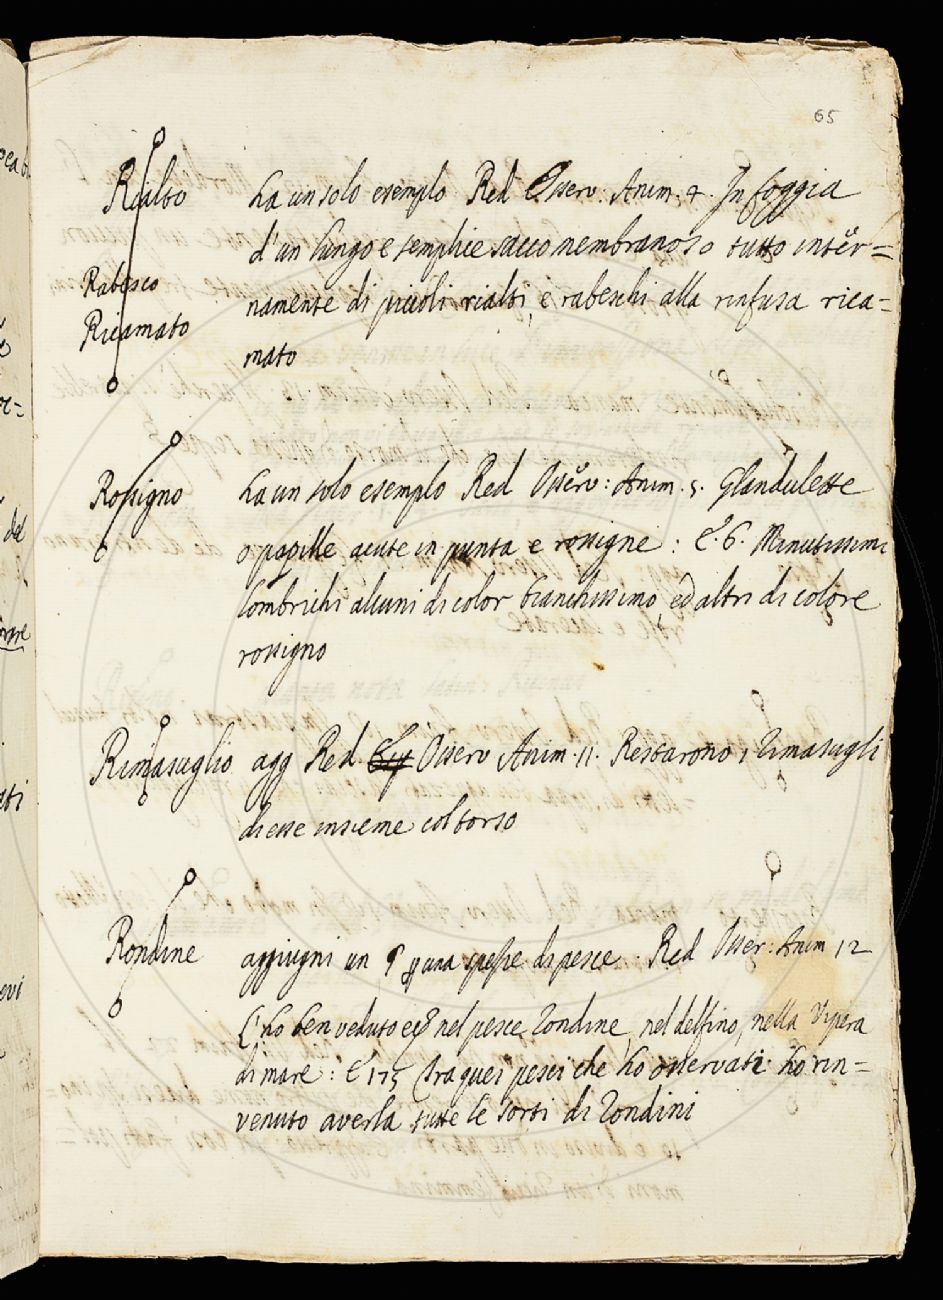 65
Rialto ha un solo esempio Red Osserv: Anim. 4. In foggia
d'un lungo e semplice sacco membranoso tutto inter=
Rabesco
namente di piccoli rialti, e rabeschi alla rinfusa rica=
Ricamato
mato
Rossigno ha un solo esempio Red Osserv: Anim. 5. Glandulette
o papille acute in punta e rossigne: E. 6. Minutissimi
lombrichi alcuni di color bianchissimo, ed altri di colore
rossigno
Rimasuglio agg Red Osserv Anim. 11. Restarono i rimasugli
di esse insieme col torso
Rondine aggiugni un § per una spessie di pesce. Red Osser: Anim 12
L'ho ben veduto ec nel pesce rondine, nel delfino, nella Vipera
di mare: E 175 Tra quei pesci che ho osservati ho rin=
venuto averla tutte le sorti di rondini